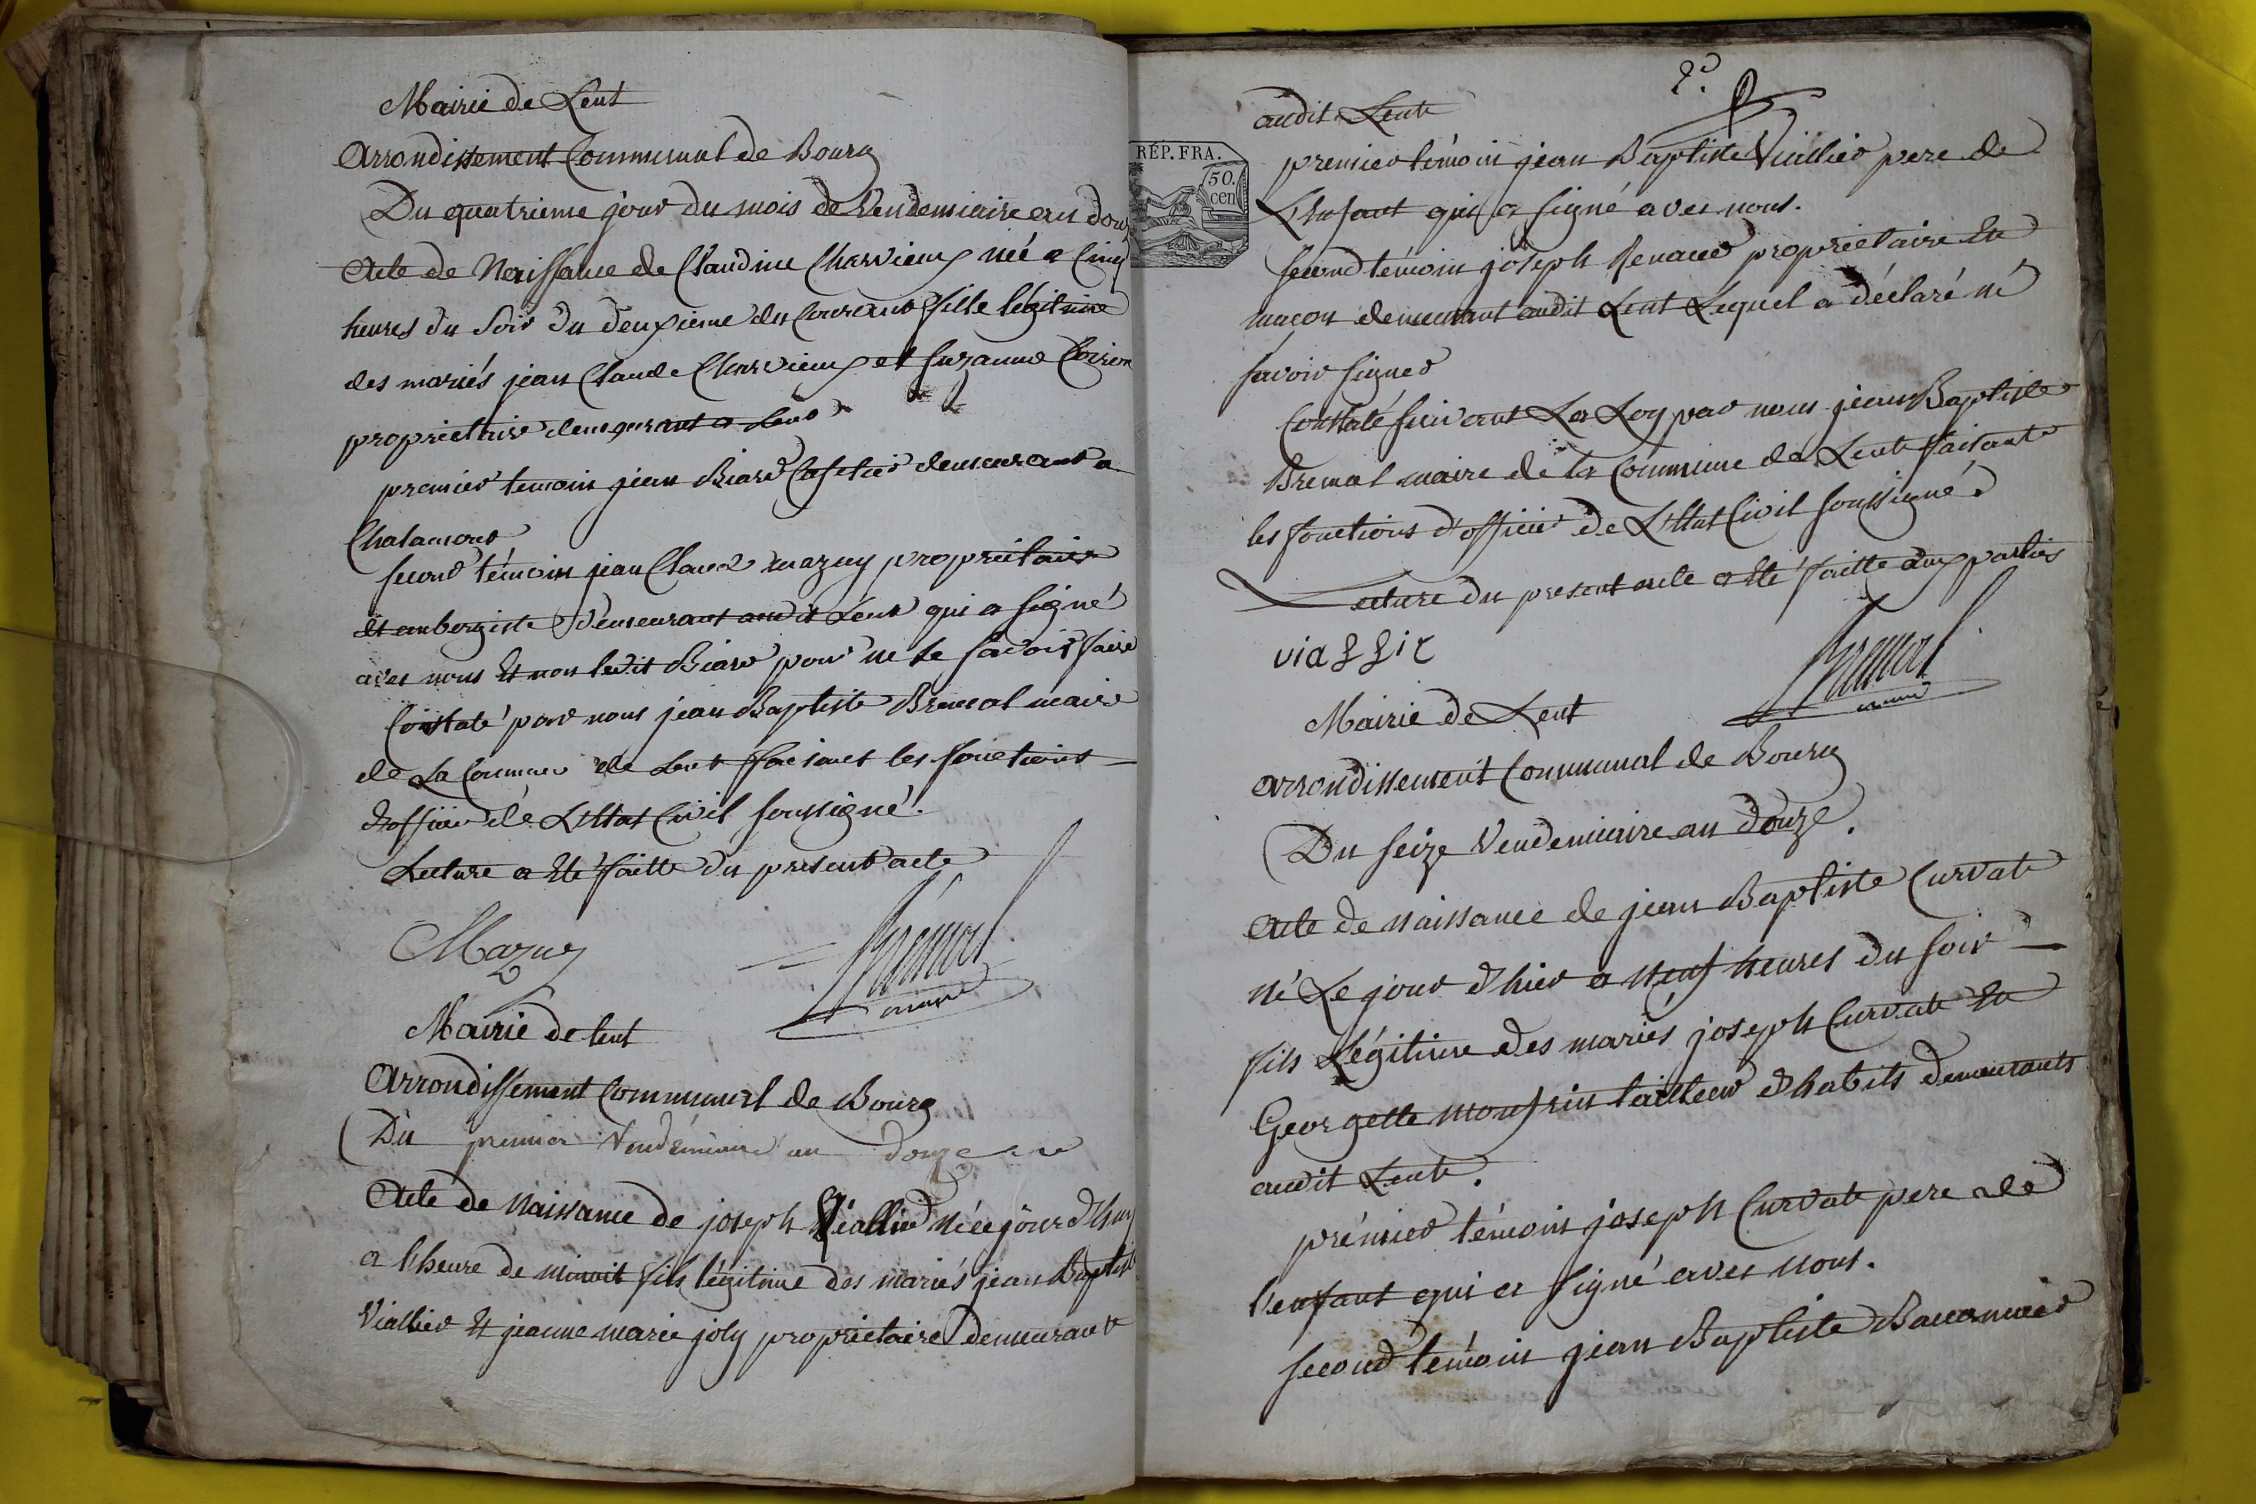 Mairie de Lent
Arrondissement Communal de Bourg
Du quatrieme jour du mois de Vendemiaire an douz
Acte de Naissance de Claudine Charvieux née a Cinq
heures du Soir du deuxieme du Courant fille légitime
des mariés jean Claude Charvieux et Suzanne
propriétaire demeurant a Lent
premier temoin jean Biard demeurant a
Chalamont
second témoin jean Claude mazuy propriétaire
et aubergiste demeurant audit Lent qui a signé
avec nous Et non ledit Biard pour ne le savoir faire
Constaté par nous jean Baptiste Bremal maire
de La Commune de Lent faisant les fonctions
d'officier de L'Etat Civil soussigné.
Lecture a Eté faitte du present acte
Mazuy Brémal
maire
Mairie de lent
Arrondissement Communal de Bourg
Du premier Vendémiaire an douze
Acte de Naissance de joseph Viallier né ce jourd'huy
a l'heure de minuit fils légitime des mariés jean Baptiste
Viallier Et jeanne marie joly propriétaire demeurant
2.e
audit Lent
RÉP. FRA.
50.
cen
premier témoin jean Baptiste Viallier pere de
L'Enfant qui a signé avec nous.
second témoin joseph Renaud propriétaire Et
maçon demeurant audit Lent Lequel a déclaré ne
savoir signer
Constaté suivant La Loy par nous jean Baptiste
Bremal maire de la Commune de Lent faisant
les fonctions d'officier de L'Etat Civil soussigné.
Lecture du present acte a Eté faitte aux parties
viallier Bremal
maire
Mairie de Lent
arrondissement Communal de Bourg
Du seize Vendemiaire an douze.
Acte de naissance de jean Baptiste Curvat
né Le jour d'hier a neuf heures du soir
fils Légitime des mariés joseph Curvat Et
Georgette monfrin tailleur d'habits demeurants
audit Lent.
prémier témoin joseph Curvat pere de
l'enfant qui a signé avec nous.
second témoin jean Baptiste